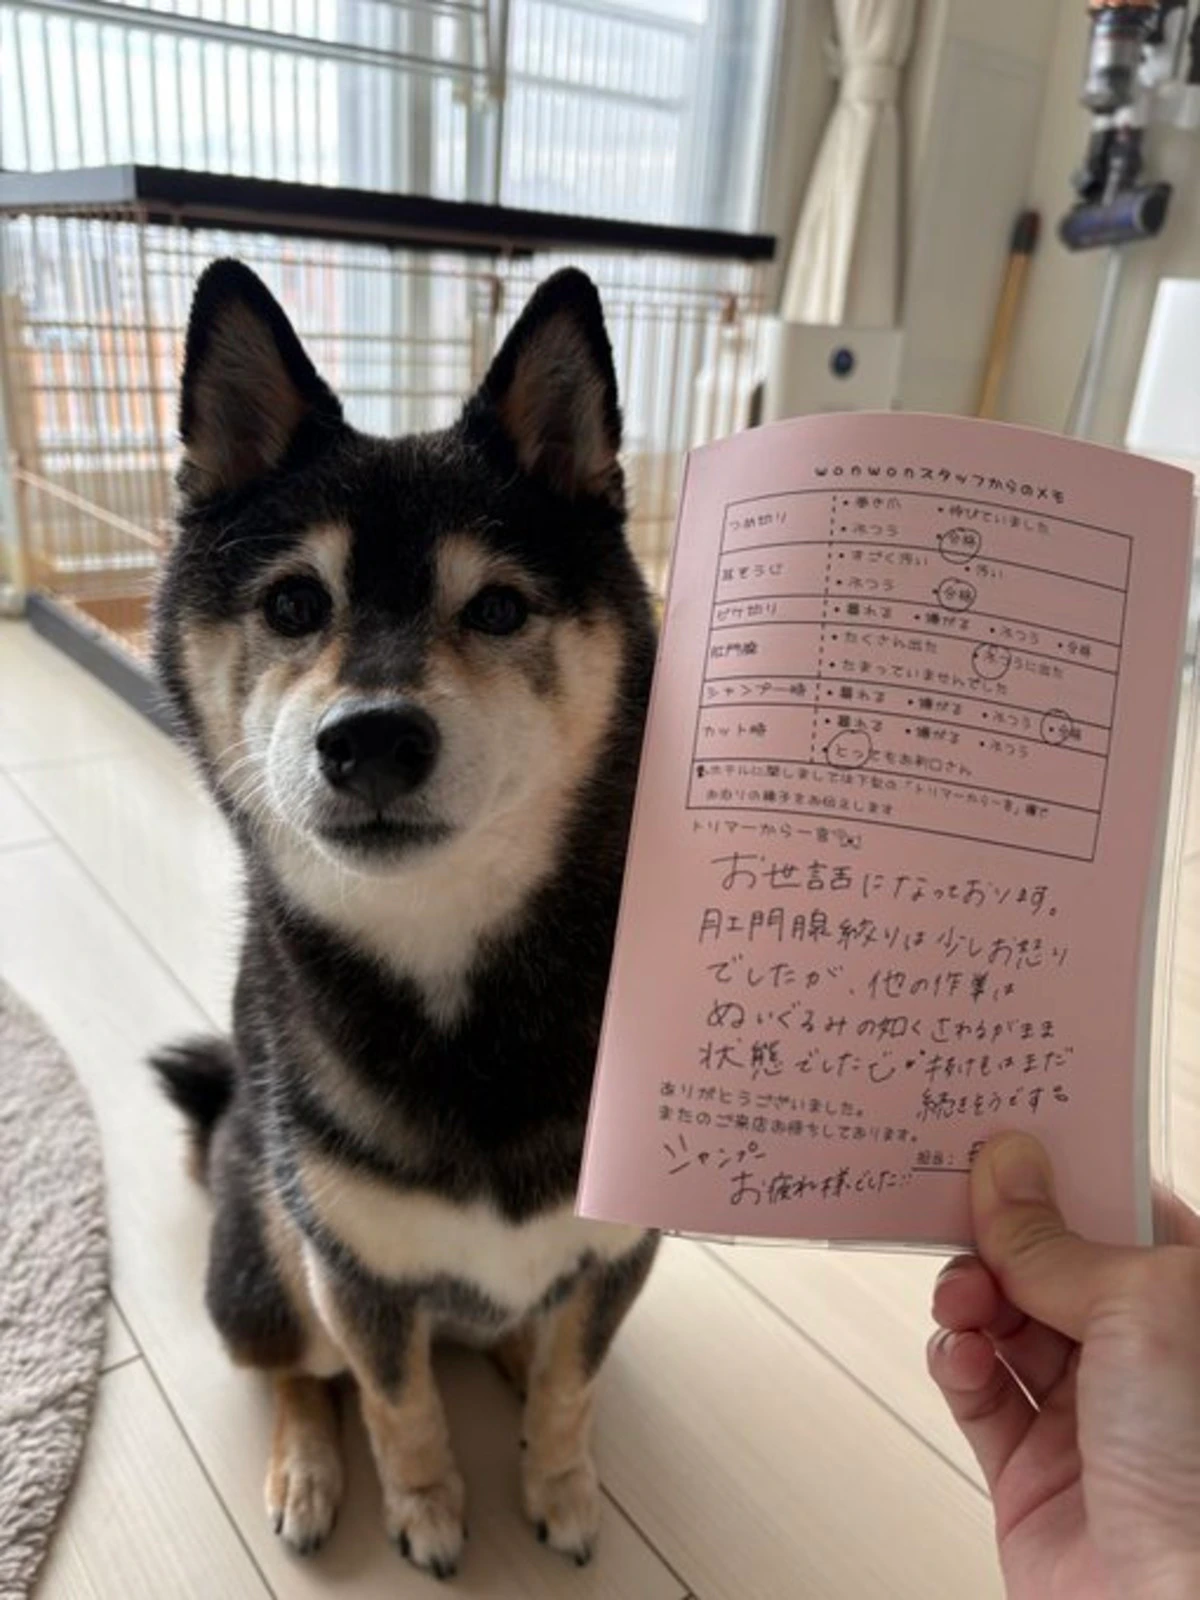 wonwonスタッフからのメモ
つめ切り ・巻き爪 ・伸びていました
・ふつう ・合格
耳そうじ ・すごく汚い ・汚い
・ふつう ・合格
ヒゲ切り ・暴れる ・嫌がる ・ふつう ・合格
肛門腺 ・たくさん出た ・ふつうに出た
・たまっていませんでした
シャンプー時 ・暴れる ・嫌がる ・ふつう ・合格
カット時 ・暴れる ・嫌がる ・ふつう
・とってもお利口さん
ホテルに関しましては下記の「トリマーから一言」欄で
お泊りの様子をお伝えします
トリマーから一言
お世話になっております。
肛門腺絞りは少しお怒り
でしたが、他の作業は
ぬいぐるみの如くされるがまま
状態でした 抜け毛はまだ
続きそうです
ありがとうございました。
またのご来店お待ちしております。
担当:
シャンプー
お疲れ様でした